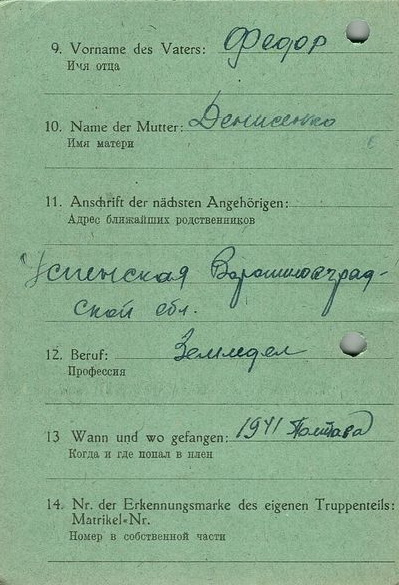 9. Vorname des Vaters: Федор
Имя отца
10. Name der Mutter: Денисенко
Имя матери
11. Anschrift der nächsten Angehörigen:
Адрес ближайших родственников
Успенская Ворошиловград-
ской обл.
12. Beruf: Земледел
Профессия
13 Wann und wo gefangen: 1941 Полтава
Когда и где попал в плен
14. Nr. der Erkennungsmarke des eigenen Truppenteils:
Matrikel-Nr.
Номер в собственной части